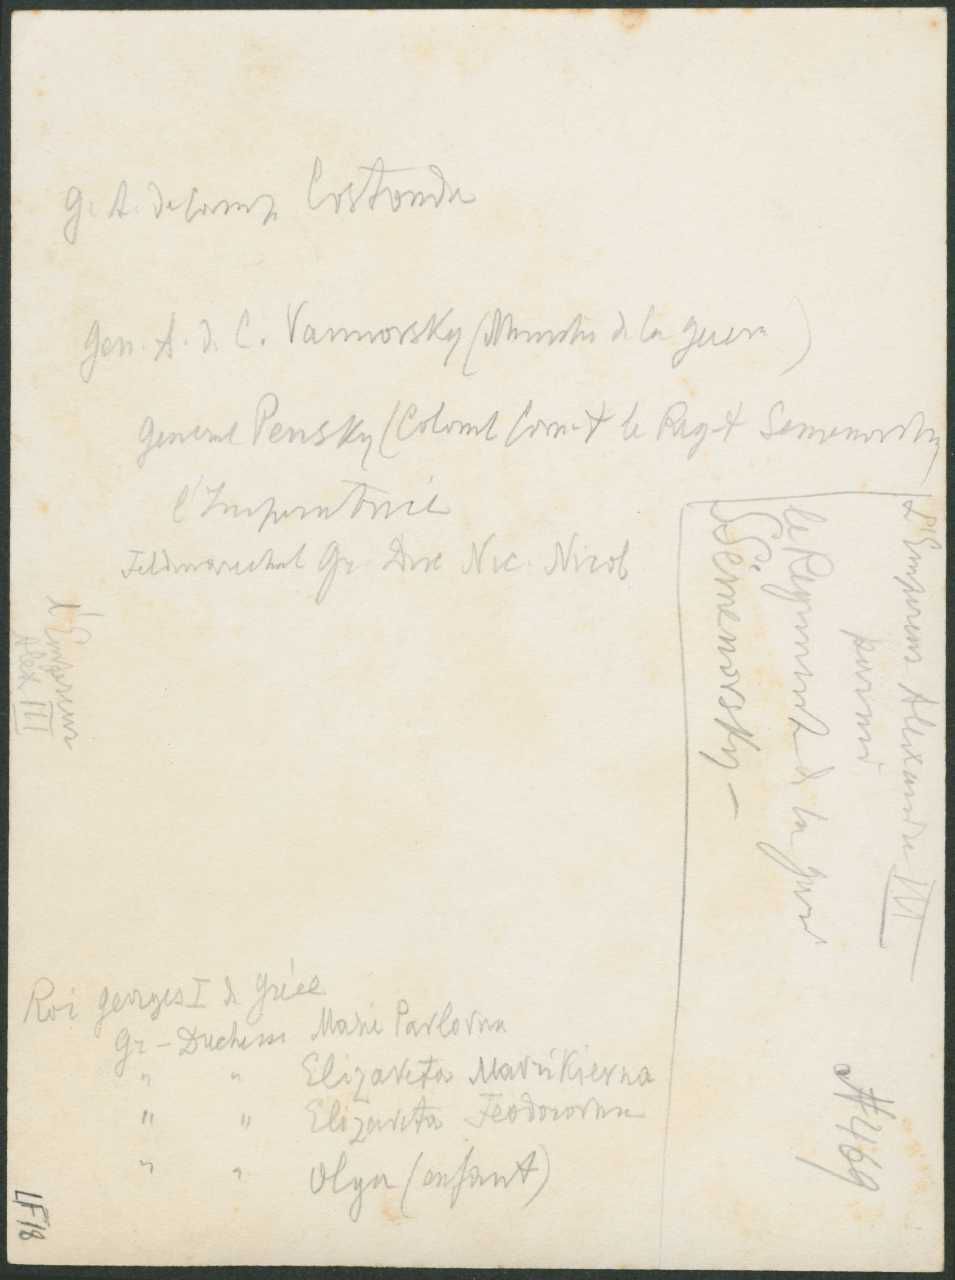 G. A. de Camp Costanda
Gen. A. d. C. Vannovsky (Ministre de la guerre)
General Pensky (Colonel Com-t le Reg-t Semenovsky
l'Imperatrice
Feldmarechal Gr. Duc Nic. Nicol
l'Empereur
Alex III
L'Empereur Alexandre III
parmi
le Regiment de la gard
Semenovsky –
Roi Georges I de Grèce
Gr – Duchesse Marie Pavlovna
" " Elizaveta Mavrikievna
" " Elizaveta Feodorovna
" " Olga (enfant)
N469
LF18